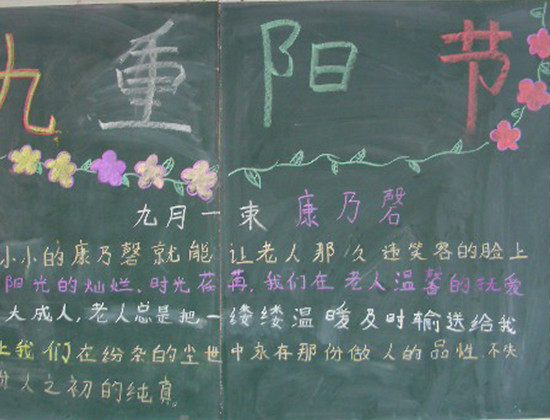 九重阳节
九月一束 康乃磬
小小的康乃磬就能让老人那久违笑容的脸上
阳光的灿烂.时光荏苒,我们在老人温馨的抚爱
大成人,老人总是把一缕缕温暖及时输送给我
上我们在纷杂的尘世中永存那份做人的品性.不失
份人之初的纯真